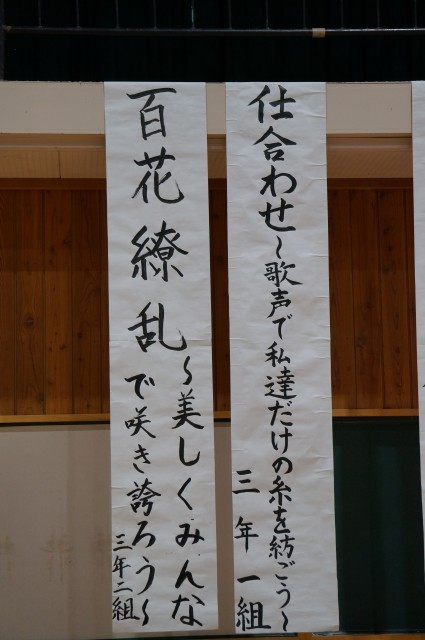 仕合わせ～歌声で私達だけの糸を紡ごう～
三年一組
百花繚乱～美しくみんな
で咲き誇ろう～
三年二組